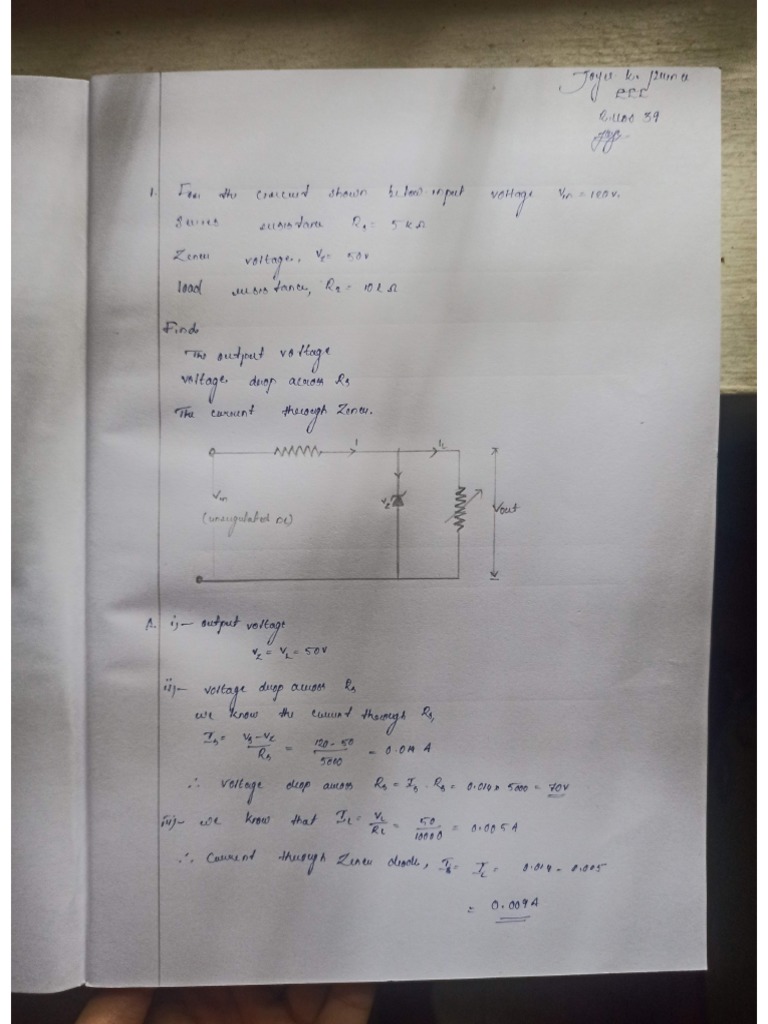 ECE
Rollno 39
1. For the circuit shown below input voltage Vin = 120v.
Series resistance Rs = 5kΩ
Zener voltage, Vz = 50v
load resistance, RL = 10kΩ
Find
The output voltage
voltage drop across Rs
The current through Zener.
I
IL
Vin
(unregulated DC)
Vz
Vout
A. i;- output voltage
Vz = VL = 50V
ii;- voltage drop across Rs
we know the current through Rs,
Is = Vs - Vz / Rs = 120 - 50 / 5000 = 0.014 A
∴ voltage drop across Rs = Is . Rs = 0.014 x 5000 = 70V
iii;- we know that IL = VL / RL = 50 / 10000 = 0.005A
∴ Current through Zener diode, Is = IL = 0.014 - 0.005
= 0.009A